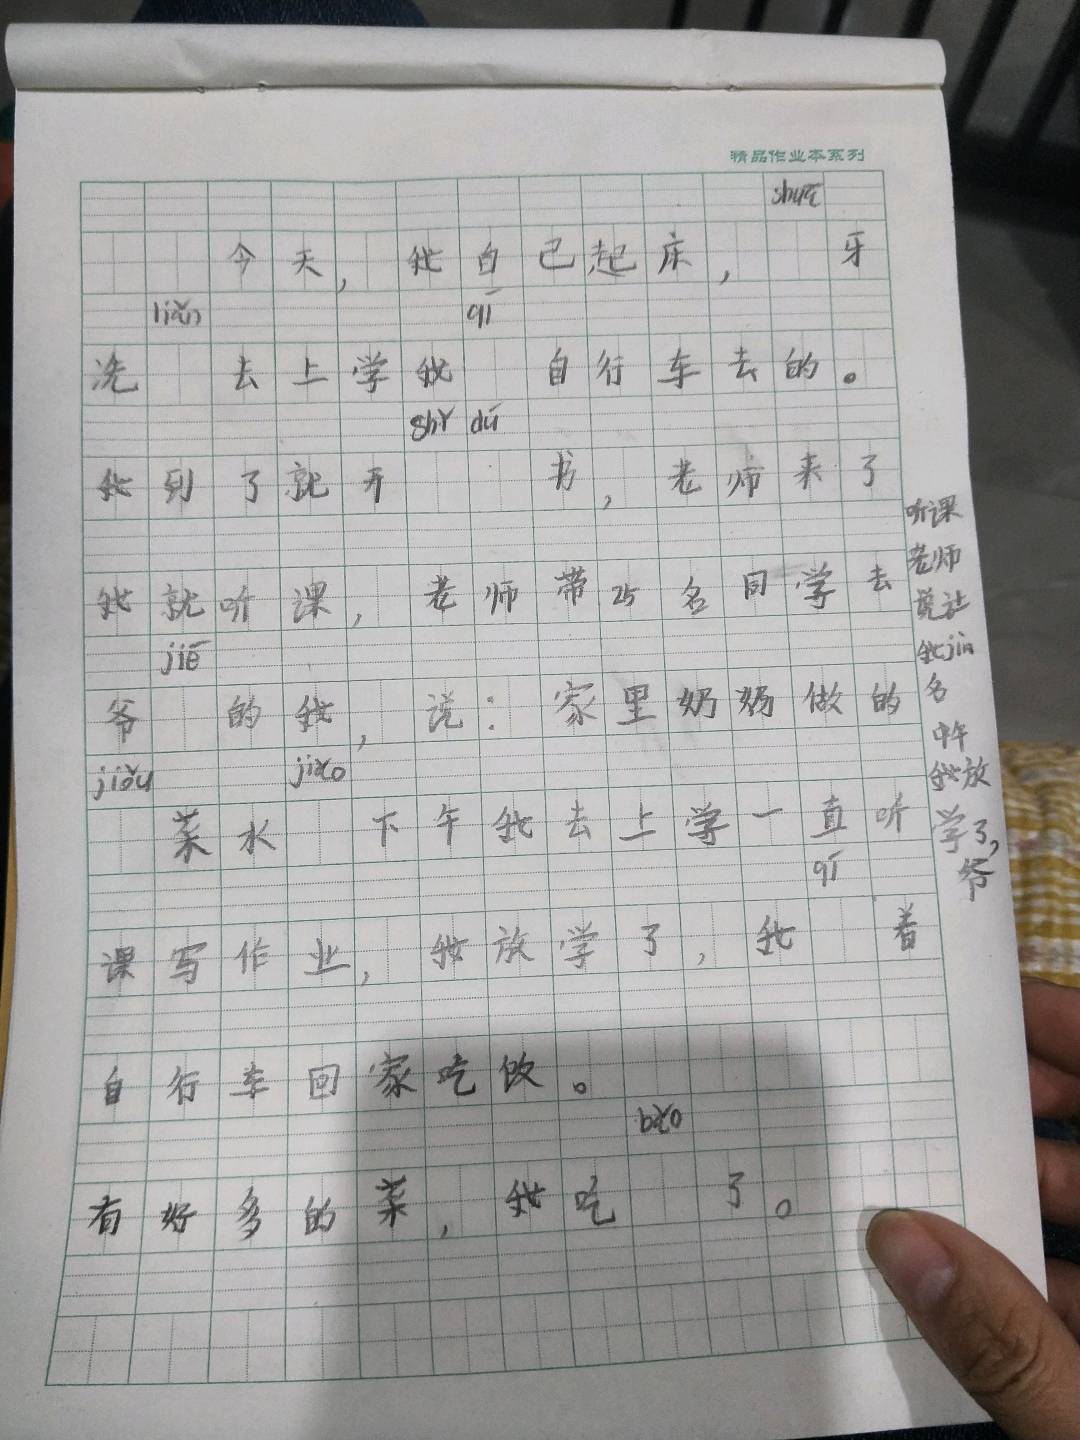 精品作业本系列
shuā
今天，我自己起床，牙
liǎn qí
洗 去上学我 自行车去的。
shǐ dú
我到了就开 书，老师来了
我就听课，老师带25名同学去
jiē
爷 的我，说：家里奶奶做的
jiǒu jiǎo
菜水 下午我去上学一直听
qí
课写作业，我放学了，我 着
自行车回家吃饭。
bǎo
有好多的菜，我吃 了。
听课
老师
说让
我jìn
名
中午
我放
学了，
爷